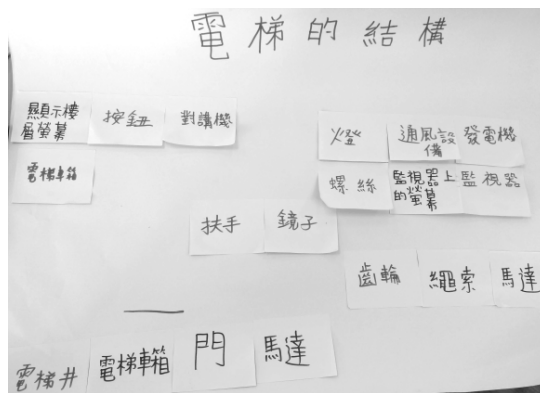 電梯的結構
顯示樓
層螢幕
按鈕
對講機
燈
通風設
備
發電機
電梯車箱
螺絲
監視器上
的螢幕
監視器
扶手
鏡子
齒輪
繩索
馬達
電梯井
電梯車箱
門
馬達